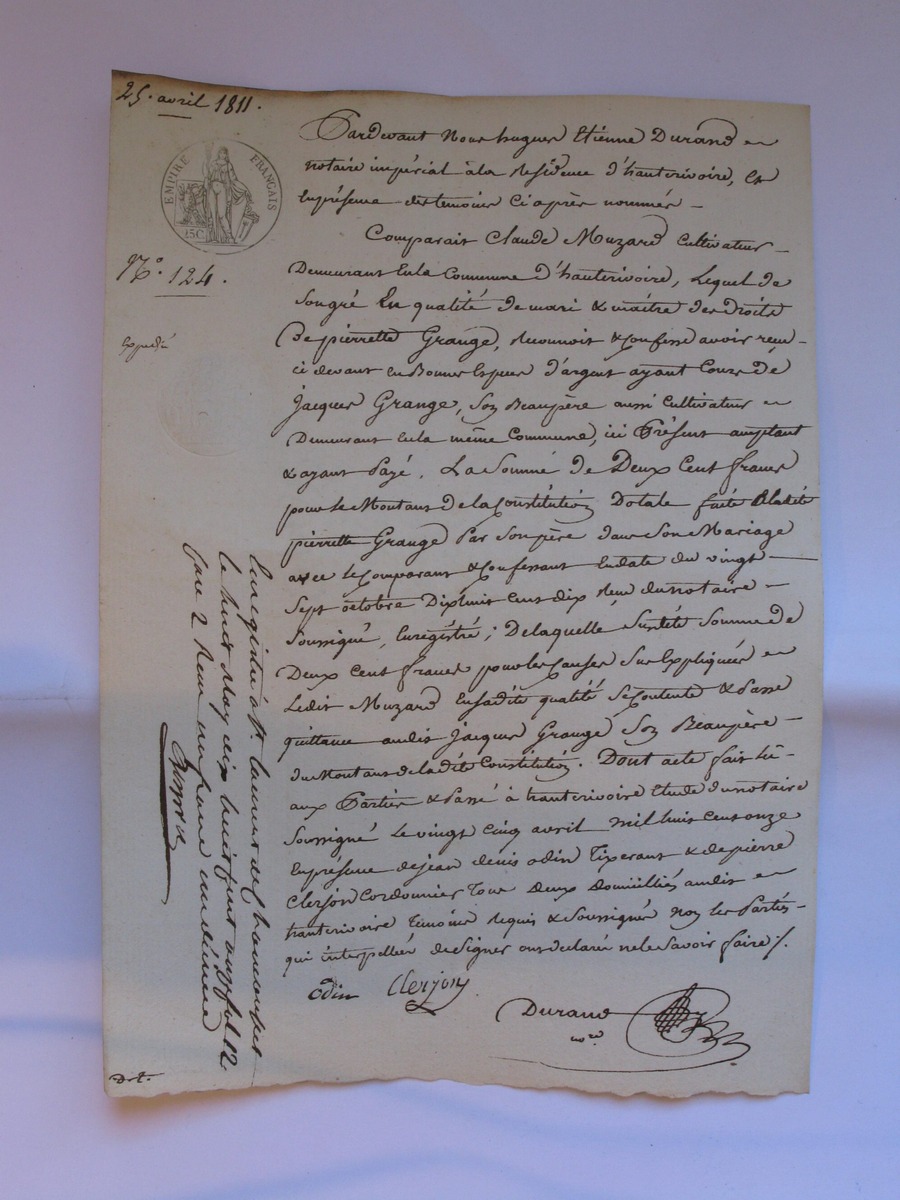 25. avril 1811.
EMPIRE FRANÇAIS
25C
N.° 124.
Expedié
Pardevant Nous hugues Etienne Durand
notaire impérial à la Residence d'hauterivoire, Et
En présence des temoins Ci après nommés
Comparait Claude Muzard Cultivateur
Demeurant En la Commune d'hauterivoire, Lequel de
Son gré En qualité de mari & maître des Droits
De pierrette Grange, Reconnoit & Confesse avoir reçu
ci devant En Bonnes Especes d'argent ayant Cours de
Jacques Grange, Son Beaupère aussi Cultivateur
Demeurant En la même Commune, ici Présent acceptant
& ayant Payé. La Somme de Deux Cent francs
pour le Montant de la Constitution Dotale faite A ladite
pierrette Grange Par Son père dans Son Mariage
avec le Comparant & Confessant En date du vingt
Sept octobre Dix huit Cent dix Reçu du notaire
Soussigné, Enregistré; De laquelle Susdite Somme de
Deux Cent francs pour les Causes Sus Expliquées
Ledit Muzard En Sadite qualité Se Contente & Passe
quittance audit Jacques Grange Son Beaupère
du Montant de ladite Constitution. Dont acte fait Lû
aux Parties & Passé à hauterivoire Etude du notaire
Soussigné Le vingt Cinq avril Mil huit Cent onze
En présence de jean denis odin Tixerant & de pierre
Clerjon Cordonnier Tous Deux Domiciliés audit
hauterivoire Témoins Requis & Soussignés Non les Parties
qui interpellées de Signer ont declaré ne le Savoir faire /.
odin Clerjon
Durand
no.re
Enregistré à St. Laurent de Chamousset
le huit May dix huit cent onze fol 82
Reçu un franc
D.t.